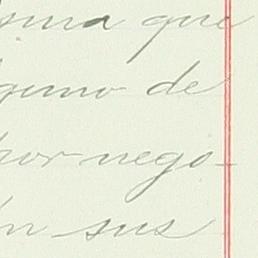 sma que
guno de
por nego-
ón sus